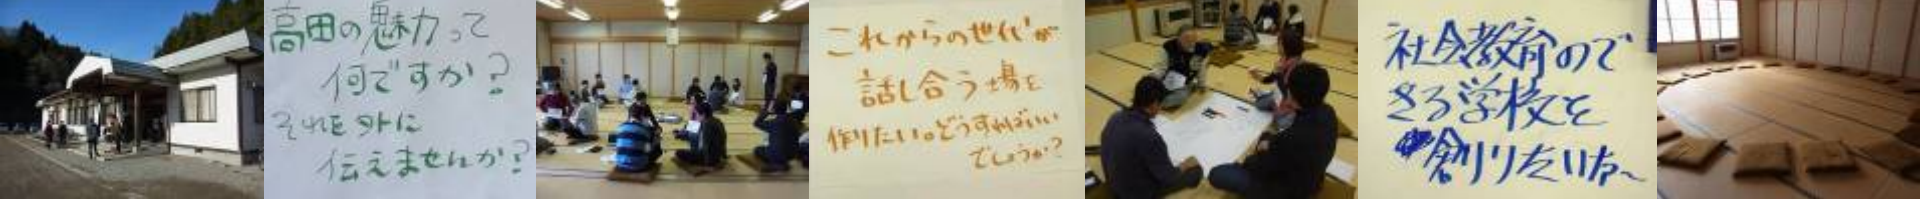 高田の魅力って
何ですか?
それを外に
伝えませんか?
これからの世代が
話し合う場を
作りたい。どうすればいい
でしょうか?
社会教育ので
きる学校を
創りたいな〜